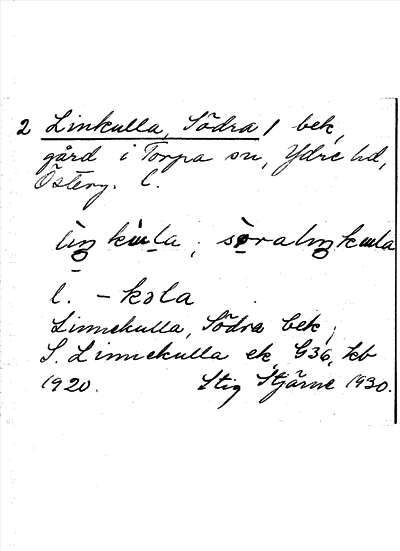 2 Linkulla, Södra / bek,
gård i Torpa sn, Ydre hd,
Österg. l.
lìŋkùla ; sø̀ralìŋkula
l. - kɔla
Linnekulla, Södra bek,
S. Linnekulla ek, G36, kb
1920. Stig Stjärne 1930.